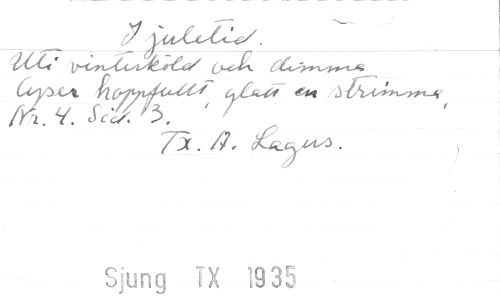 I juletid.
Uti vinterköld och dimma
lyser hoppfullt, glatt en strimma,
Nr. 4. Sid. 3.
Tx. A. Lagus.
Sjung TX 1935